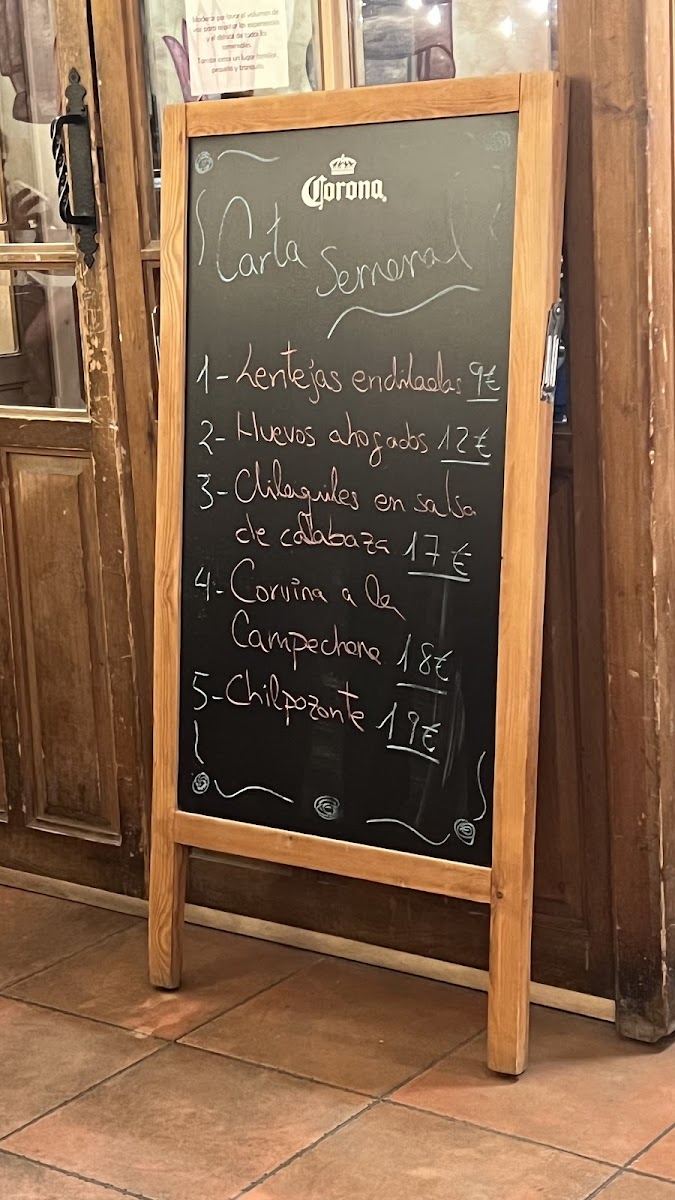 Moderar por favor el volumen de
voz para respetar las experiencias
y el disfrute de todos los
comensales.
Tomas somos un lugar familiar,
pequeño y tranquilo.
Corona
Carta Semanal
1- Lentejas endiladas 9€
2- Huevos ahogados 12€
3- Chilaquiles en salsa
de calabaza 17€
4- Corvina a la
Campechana 18€
5- Chilpozonte 19€